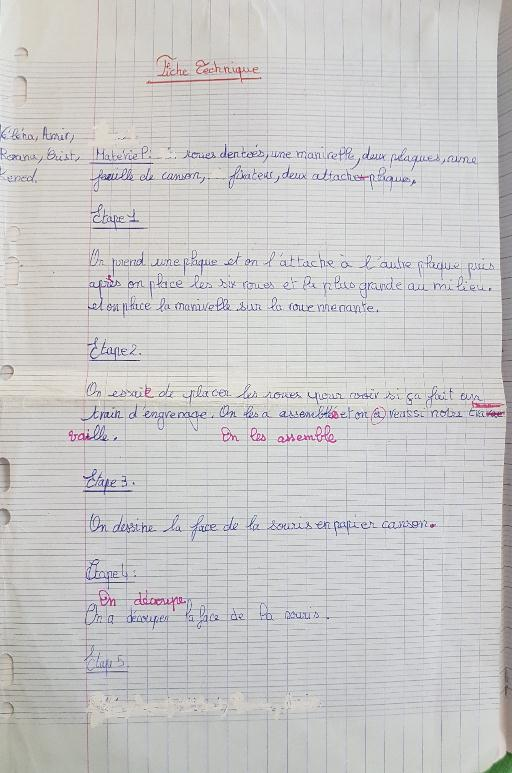 Fiche Technique
Eléna, Amir,
Romna, Brist,
Kened.
Matériel: roues dentées, une manivelle, deux plaques, une
feuille de canson, fixateurs, deux attaches plaques.
Etape 1
On prend une plaque et on l'attache à l'autre plaque puis
après on place les six roues et la plus grande au milieu.
et on place la manivelle sur la roue menante.
Etape 2.
On essaie de placer les roues pour voir si ça fait un
train d'engrenage. On les a assemblés et on a réussi notre tra
vaille. On les assemble
Etape 3.
On dessine la face de la souris en papier canson.
Etape 4:
On découpe
On a découper la face de la souris.
Etape 5